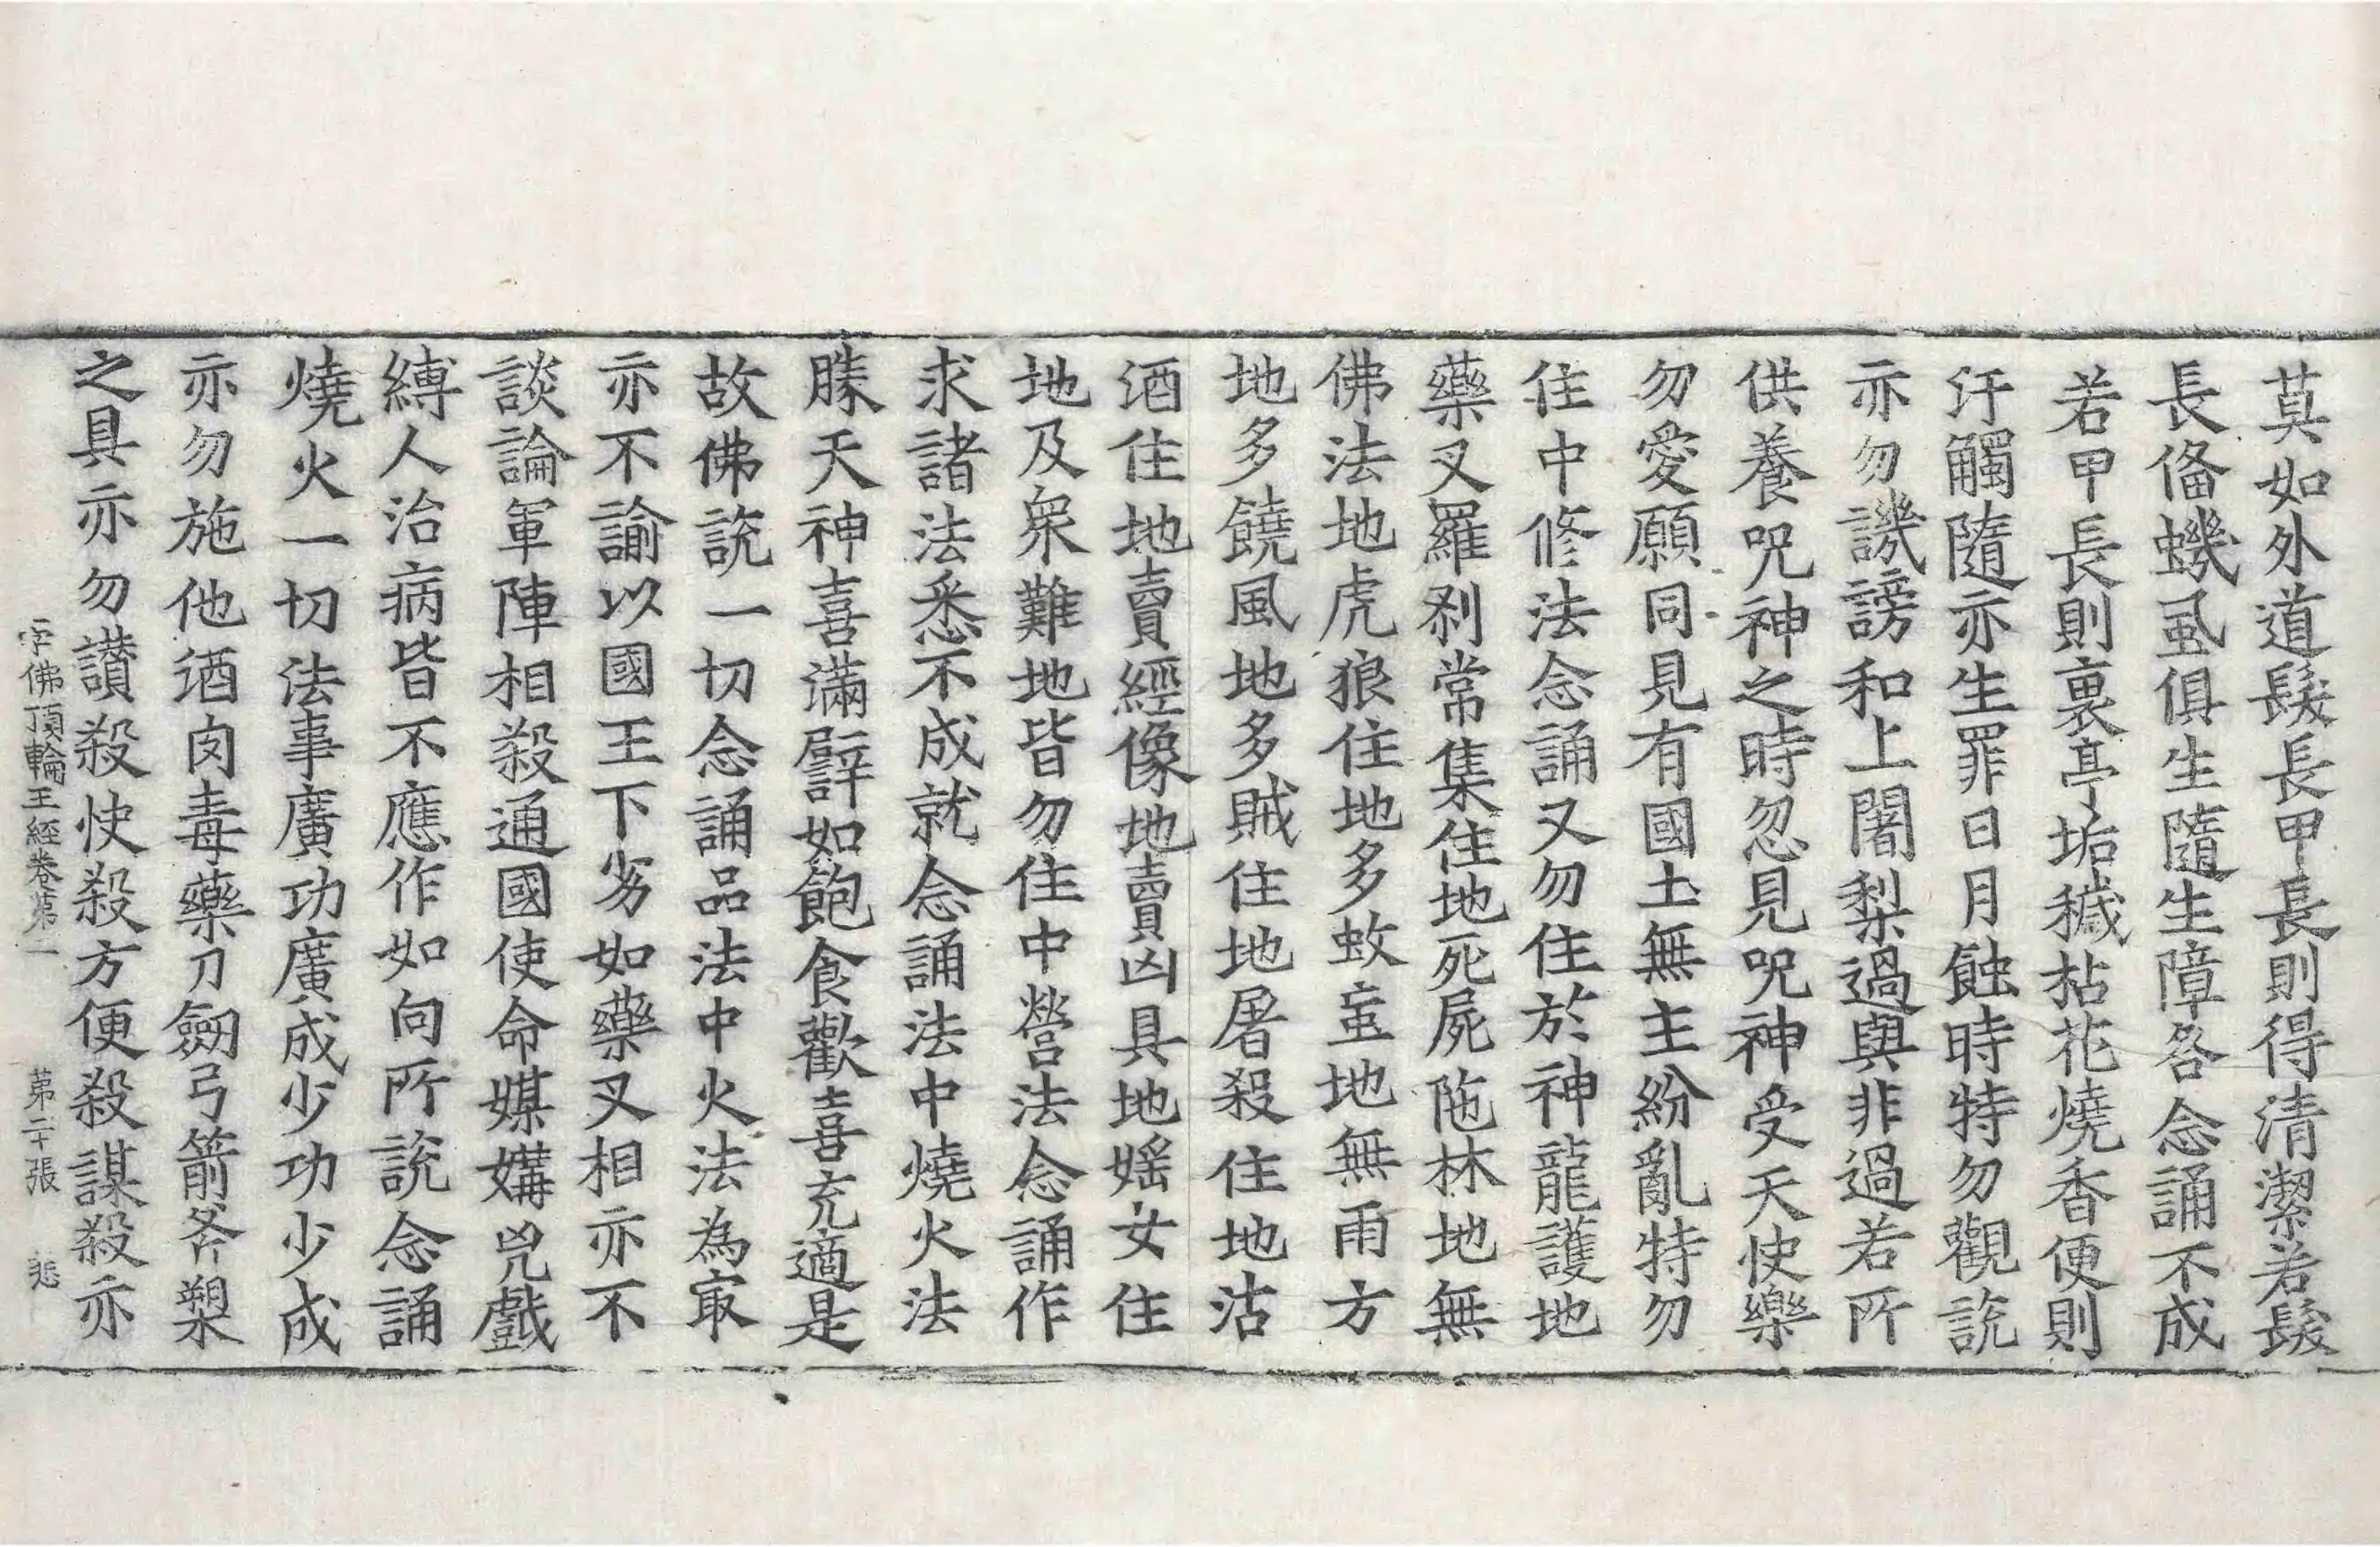 莫如外道髮長甲長則得清潔若髮
長俻蟣虱俱生隨生障各念誦不成
若甲長則裏亭垢穢拈花燒香便則
汙觸隨亦生罪日月蝕時特勿觀說
亦勿譏謗和上闍梨過與非過若所
供養呪神之時忽見呪神受天快樂
勿愛願同見有國土無主紛亂特勿
住中修法念誦又勿住於神龍護地
藥叉羅刹常集住地死屍陁林地無
佛法地虎狼住地多蚊䖟地無雨方
地多饒風地多賊住地屠殺住地沽
酒住地賣經像地賣凶具地婬女住
地及衆難地皆勿住中營法念誦作
求諸法悉不成就念誦法中燒火法
勝天神喜滿譬如飽食歡喜充適是
故佛說一切念誦品法中火法為㝡
亦不諭以國王下劣如藥叉相亦不
談論軍陣相殺通國使命媒媾兇戲
縛人治病皆不應作如向所說念誦
燒火一切法事廣功廣成少功少成
亦勿施他酒肉毒藥刀劒弓箭斧槊
之具亦勿讃殺快殺方便殺謀殺亦
字佛頂輪王經卷第一 第二十張 悲